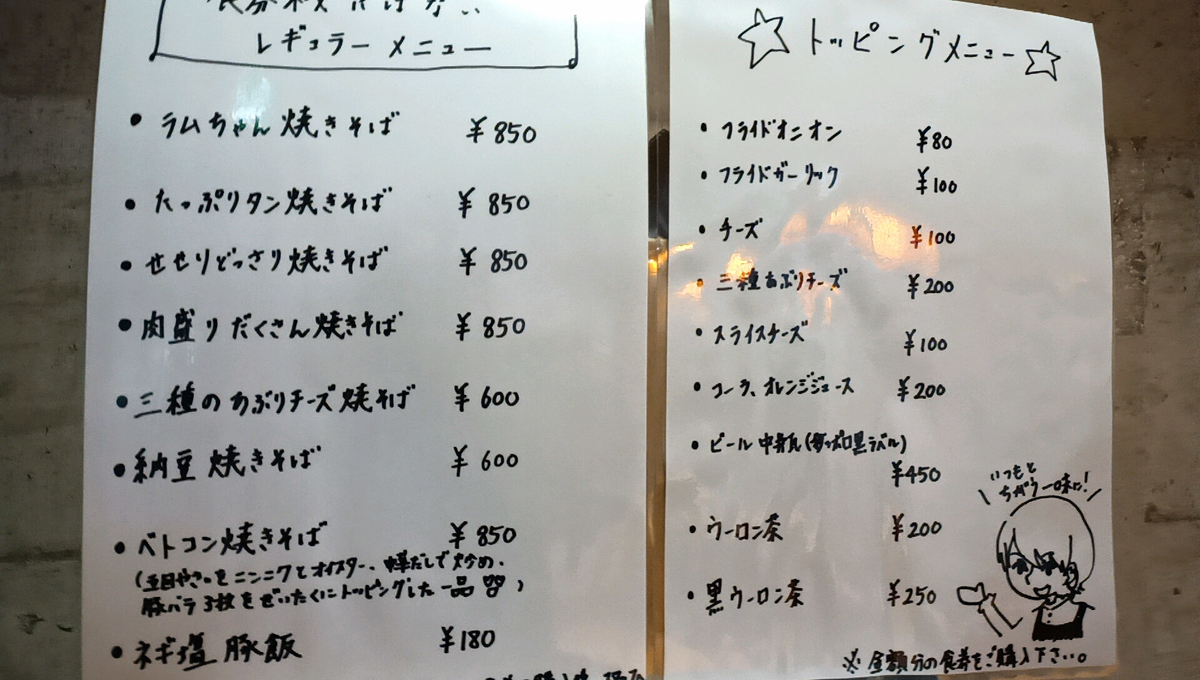 レギュラーメニュー
• ラムちゃん焼きそば ¥850
• たっぷりタン焼きそば ¥850
• せせりどっさり焼きそば ¥850
• 肉盛りだくさん焼きそば ¥850
• 三種のあぶりチーズ焼きそば ¥600
• 納豆焼きそば ¥600
• ベトコン焼きそば ¥850
をニンニクとオイスター、だしで炒め、
豚バラ3枚をぜいたくにトッピングした一品
• ネギ塩豚飯 ¥180
☆ トッピングメニュー ☆
• フライドオニオン ¥80
• フライドガーリック ¥100
• チーズ ¥100
• 三種あぶりチーズ ¥200
• スライスチーズ ¥100
• コーラ、オレンジジュース ¥200
• ビール中瓶(サッポロ黒ラベル)
¥450
• ウーロン茶 ¥200
• 黒ウーロン茶 ¥250
いつもと
ちがう一味に!
※ 金額分の食券をご購入下さい。